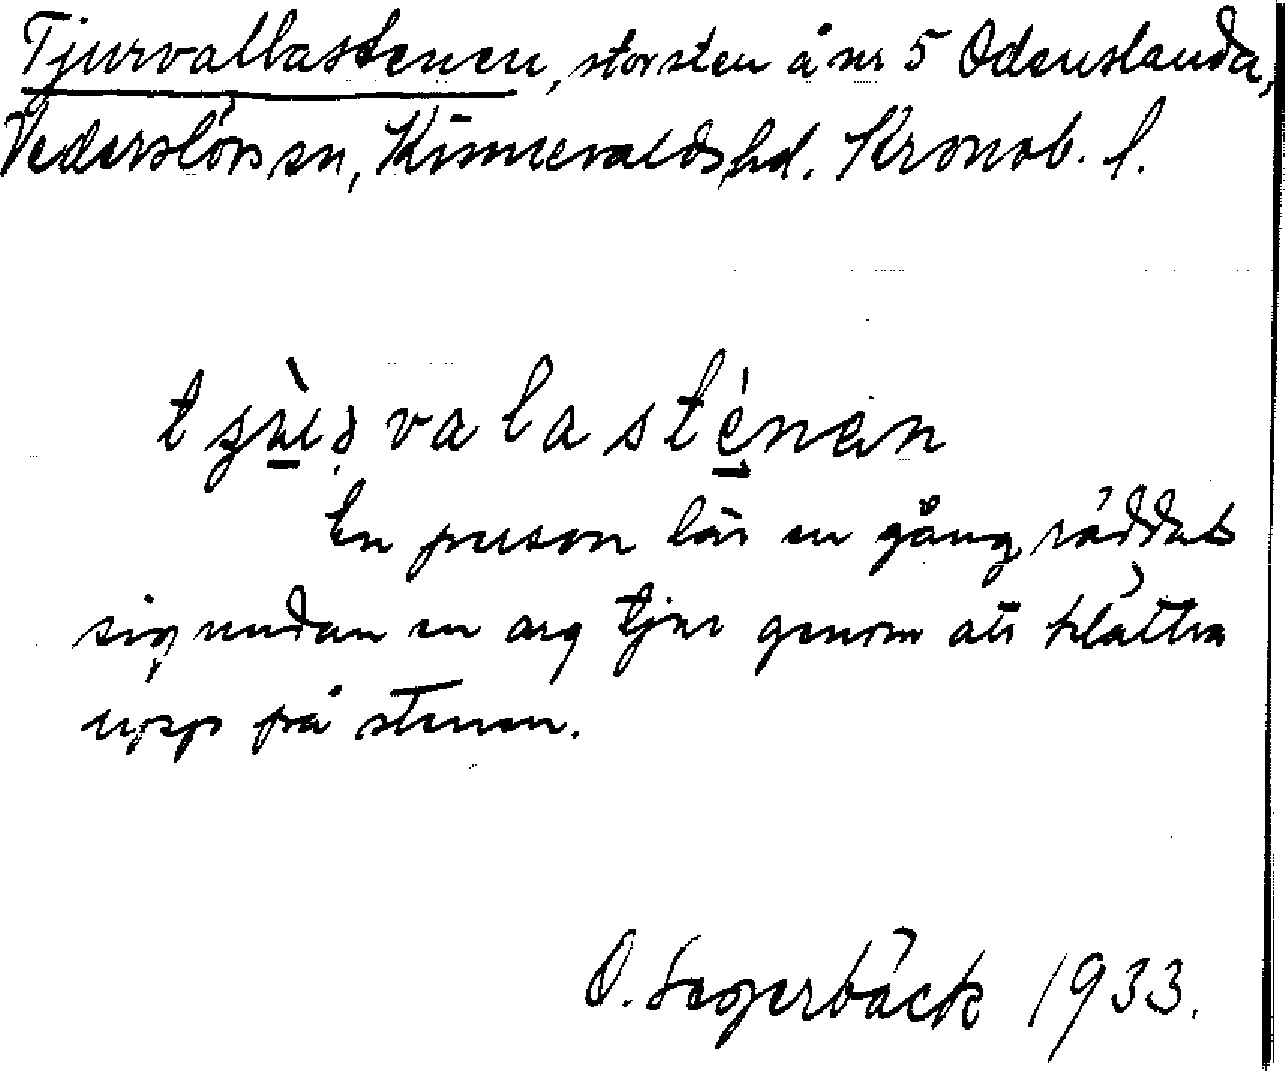 Tjurvallastenen, stor sten å nr 5 Odenslanda,
Vederslövs sn, Kinnevalds hd. Kronob. l.
valasténan
En person lär en gång räddat
sig undan en arg tjur genom att klättra
upp på stenen.
O. Segerbäck 1933.